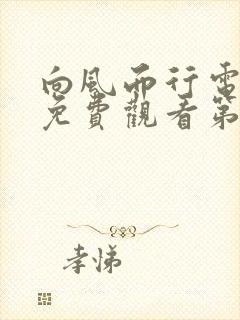 向風而行電
免費觀看第
孝悌